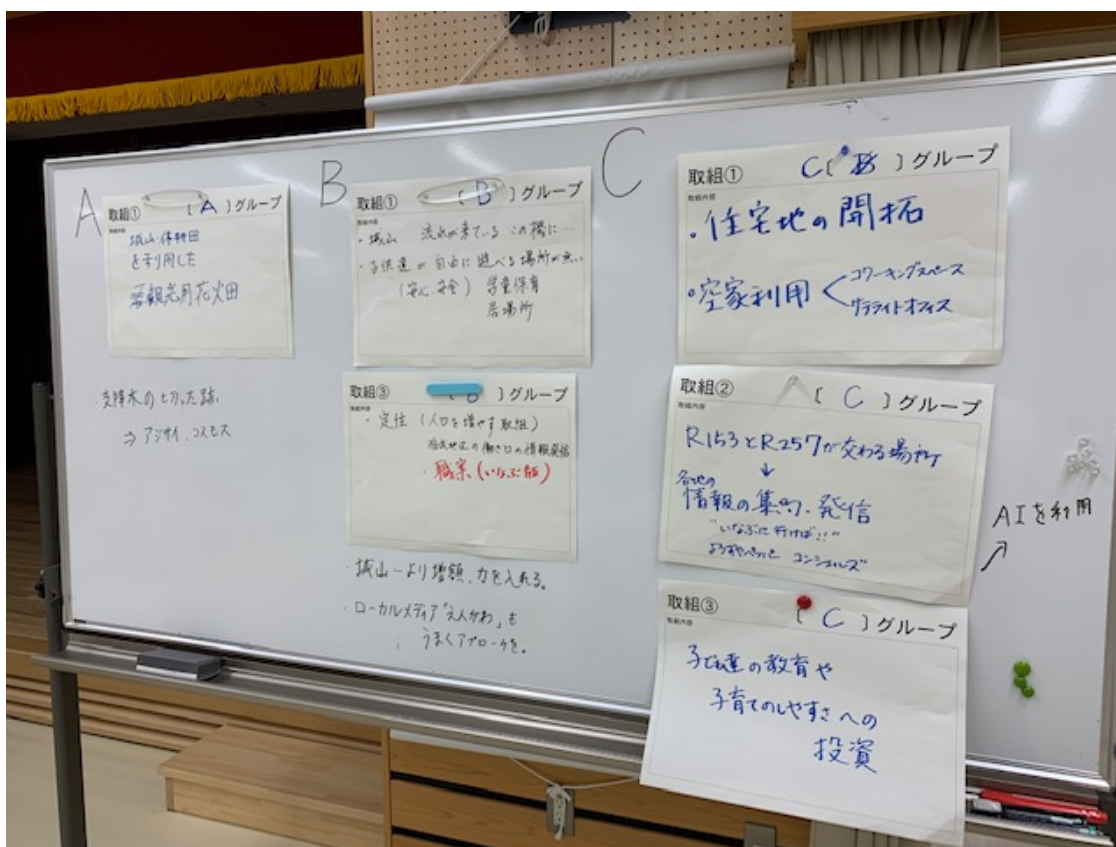 A
取組① 〔 A 〕グループ
取組内容
城山・休耕田
を利用した
観光用花火田
・支障木の切った跡。
⇒ アジサイ、コスモス
B
取組① 〔 B 〕グループ
取組内容
・城山 流れが来ている この機に…
・子供達が自由に遊べる場所が無い
(安心、安全) 学童保育
居場所
取組③ 〕グループ
取組内容
・定住 (人口を増やす取組)
の働き口の情報発信
・職案(いなぶ版)
・城山ーより増額、力を入れる。
・ローカルメディア「えんがわ」も
うまくアプローチを。
C
取組① C〔 〕グループ
取組内容
・住宅地の開拓
・空家利用 < コワーキングスペース
サテライトオフィス
取組② 〔 C 〕グループ
取組内容
R153とR257が交わる場所
↓
各地の
情報の集約、発信
"いなぶに行けば!!"
コンシェルズ"
AIを利用
取組③ 〔 C 〕グループ
取組内容
子ども達の教育や
子育てのしやすさへの
投資